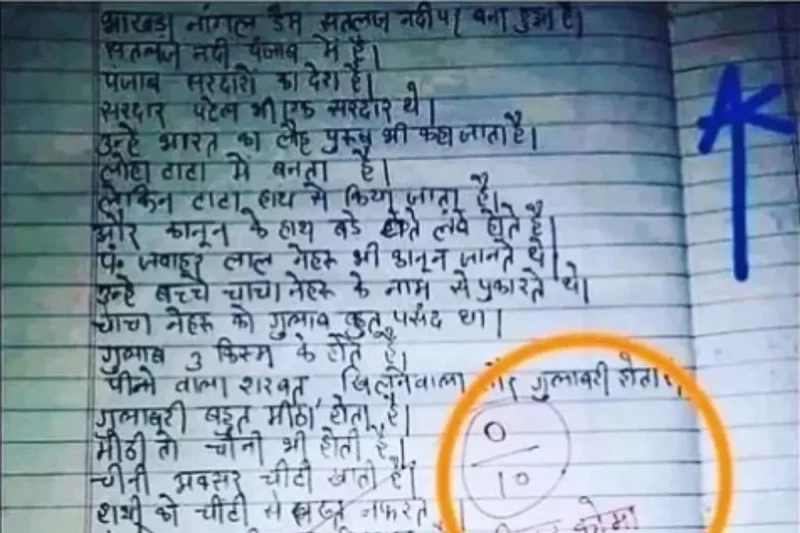 भाखड़ा नांगल डैम सतलज नदी पर बना हुआ है।
सतलज नदी पंजाब में है।
पंजाब सरदारों का देश है।
सरदार पटेल भी एक सरदार थे।
उन्हे भारत का लौह पुरुष भी कहा जाता है।
लोहा टाटा में बनता है।
लेकिन टाटा हाथ से किया जाता है।
और कानून के हाथ बडे होते लंबे होते है।
पं. जवाहर लाल नेहरू भी कानून जानते थे।
उन्हे बच्चे चाचा नेहरू के नाम से पुकारते थे।
चाचा नेहरू को गुलाब पसंद था।
गुलाब 3 किस्म के होते है।
वाला शरबत, और गुलाबरी होता
गुलाबरी बहुत मीठा होता है।
मीठी तो चीनी भी होती है।
चीनी अक्सर चीटी खाती है।
को चीटी से सख्त नफरत
0
10
कोमा